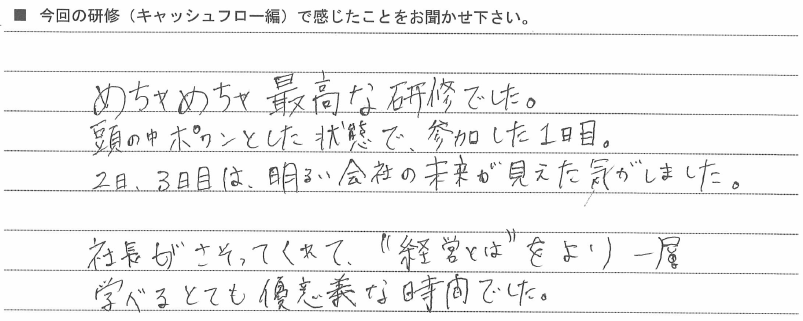 ■ 今回の研修（キャッシュフロー編）で感じたことをお聞かせ下さい。
めちゃめちゃ最高な研修でした。
頭の中ポワンとした状態で、参加した1日目。
2日、3日目は、明るい会社の未来が見えた気がしました。
社長がさそってくれて、“経営とは”をより一層
学べるとても優意義な時間でした。